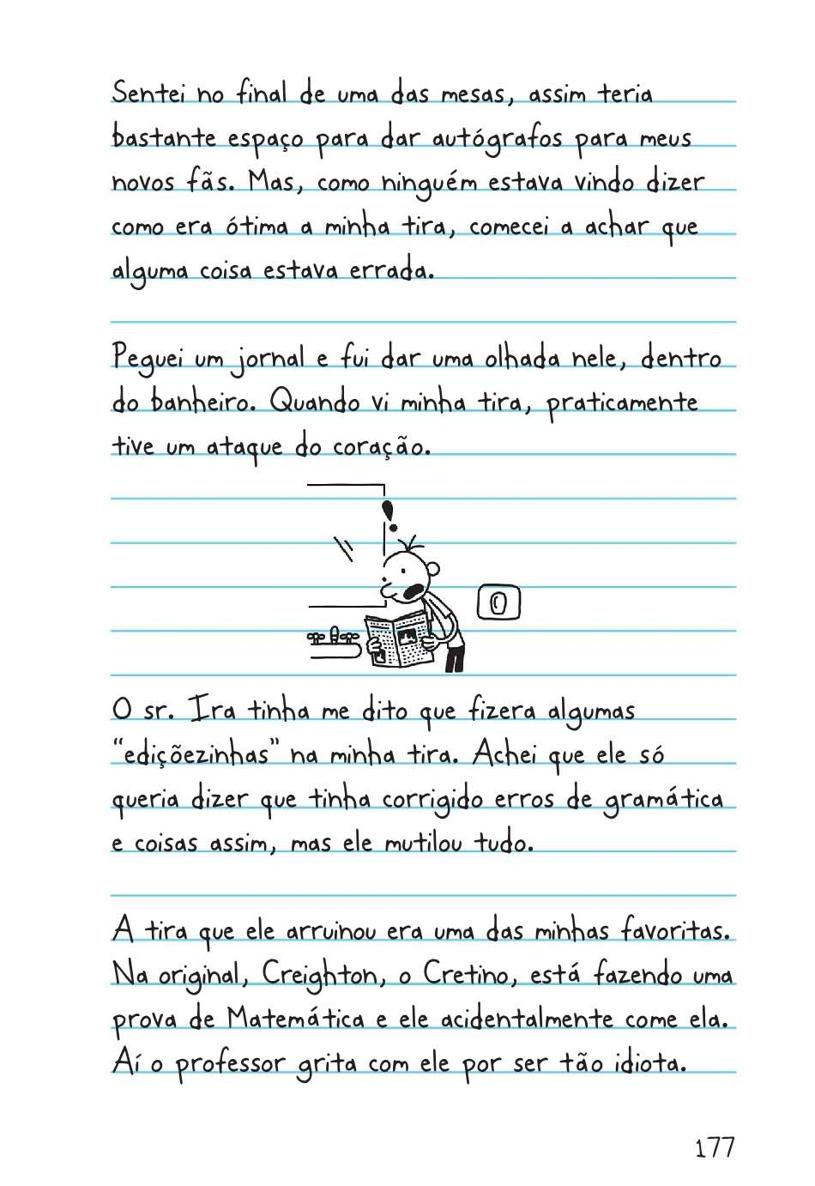 Sentei no final de uma das mesas, assim teria
bastante espaço para dar autógrafos para meus
novos fãs. Mas, como ninguém estava vindo dizer
como era ótima a minha tira, comecei a achar que
alguma coisa estava errada.
Peguei um jornal e fui dar uma olhada nele, dentro
do banheiro. Quando vi minha tira, praticamente
tive um ataque do coração.
!
O sr. Ira tinha me dito que fizera algumas
“ediçõezinhas” na minha tira. Achei que ele só
queria dizer que tinha corrigido erros de gramática
e coisas assim, mas ele mutilou tudo.
A tira que ele arruinou era uma das minhas favoritas.
Na original, Creighton, o Cretino, está fazendo uma
prova de Matemática e ele acidentalmente come ela.
Aí o professor grita com ele por ser tão idiota.
177